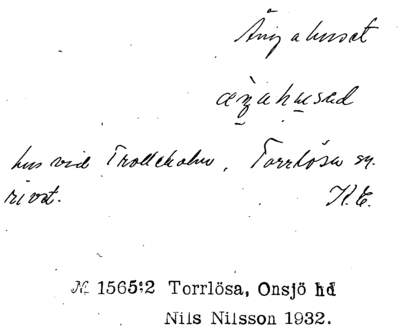 Ängahuset
æŋahused
hus vid Trolleholm, Torrlösa sn.
rivet. K.E.
№ 1565:2 Torrlösa, Onsjö hd
Nils Nilsson 1932.